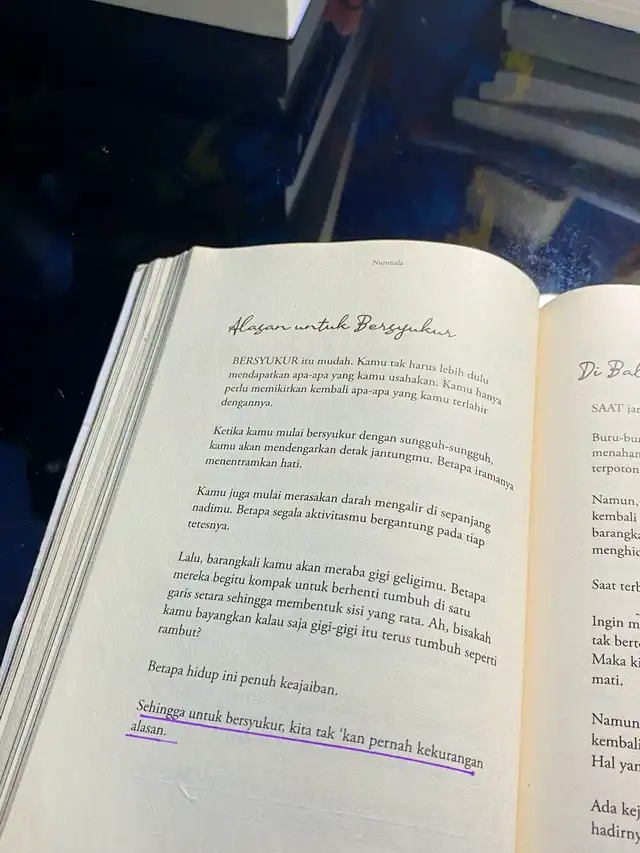 Nurunala
Alasan untuk Bersyukur
BERSYUKUR itu mudah. Kamu tak harus lebih dulu
mendapatkan apa-apa yang kamu usahakan. Kamu hanya
perlu memikirkan kembali apa-apa yang kamu terlahir
dengannya.
Ketika kamu mulai bersyukur dengan sungguh-sungguh,
kamu akan mendengarkan detak jantungmu. Betapa iramanya
menentramkan hati.
Kamu juga mulai merasakan darah mengalir di sepanjang
nadimu. Betapa segala aktivitasmu bergantung pada tiap
tetesnya.
Lalu, barangkali kamu akan meraba gigi geligimu. Betapa
mereka begitu kompak untuk berhenti tumbuh di satu
garis setara sehingga membentuk sisi yang rata. Ah, bisakah
kamu bayangkan kalau saja gigi-gigi itu terus tumbuh seperti
rambut?
Betapa hidup ini penuh keajaiban.
Sehingga untuk bersyukur, kita tak 'kan pernah kekurangan
alasan.
Di Bal
SAAT jar
Buru-bur
menahan
terpoton
Namun,
kembali
barangka
menghid
Saat terb
Ingin m
tak bert
Maka ki
mati.
Namun
kembali
Hal yan
Ada kej
hadirny